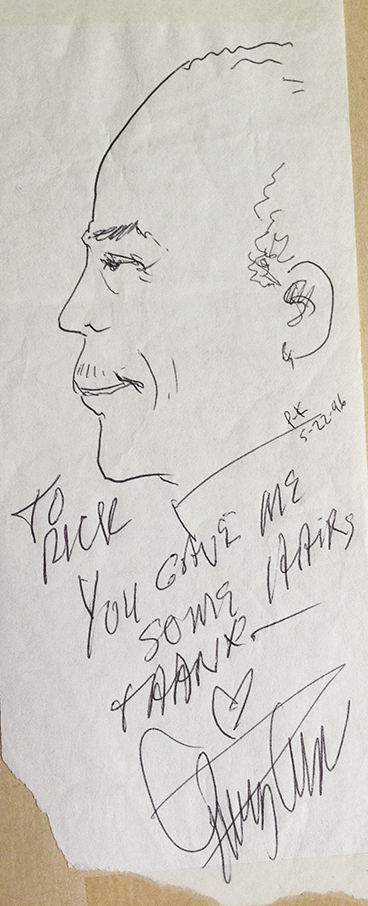 R-K
5-22-96
TO
RICK
YOU GAVE ME
SOME HAIRS
THANX.